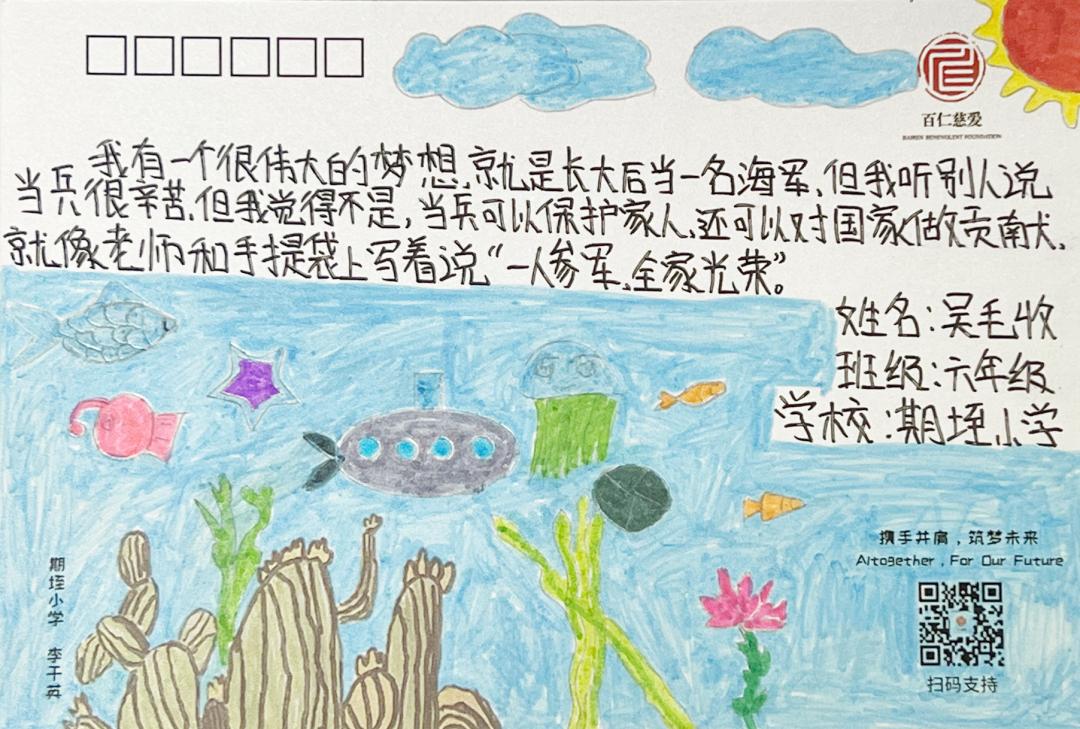 百仁慈爱
BAIREN BENEVOLENT FOUNDATION
我有一个很伟大的梦想,就是长大后当一名海军,但我听别人说
当兵很辛苦,但我觉得不是,当兵可以保护家人,还可以对国家做贡献,
就像老师和手提袋上写着说“一人参军,全家光荣”。
姓名:吴毛收
班级:六年级
学校:期垤小学
携手并肩,筑梦未来
Altogether , For Our Future
扫码支持
期垤小学 李干英